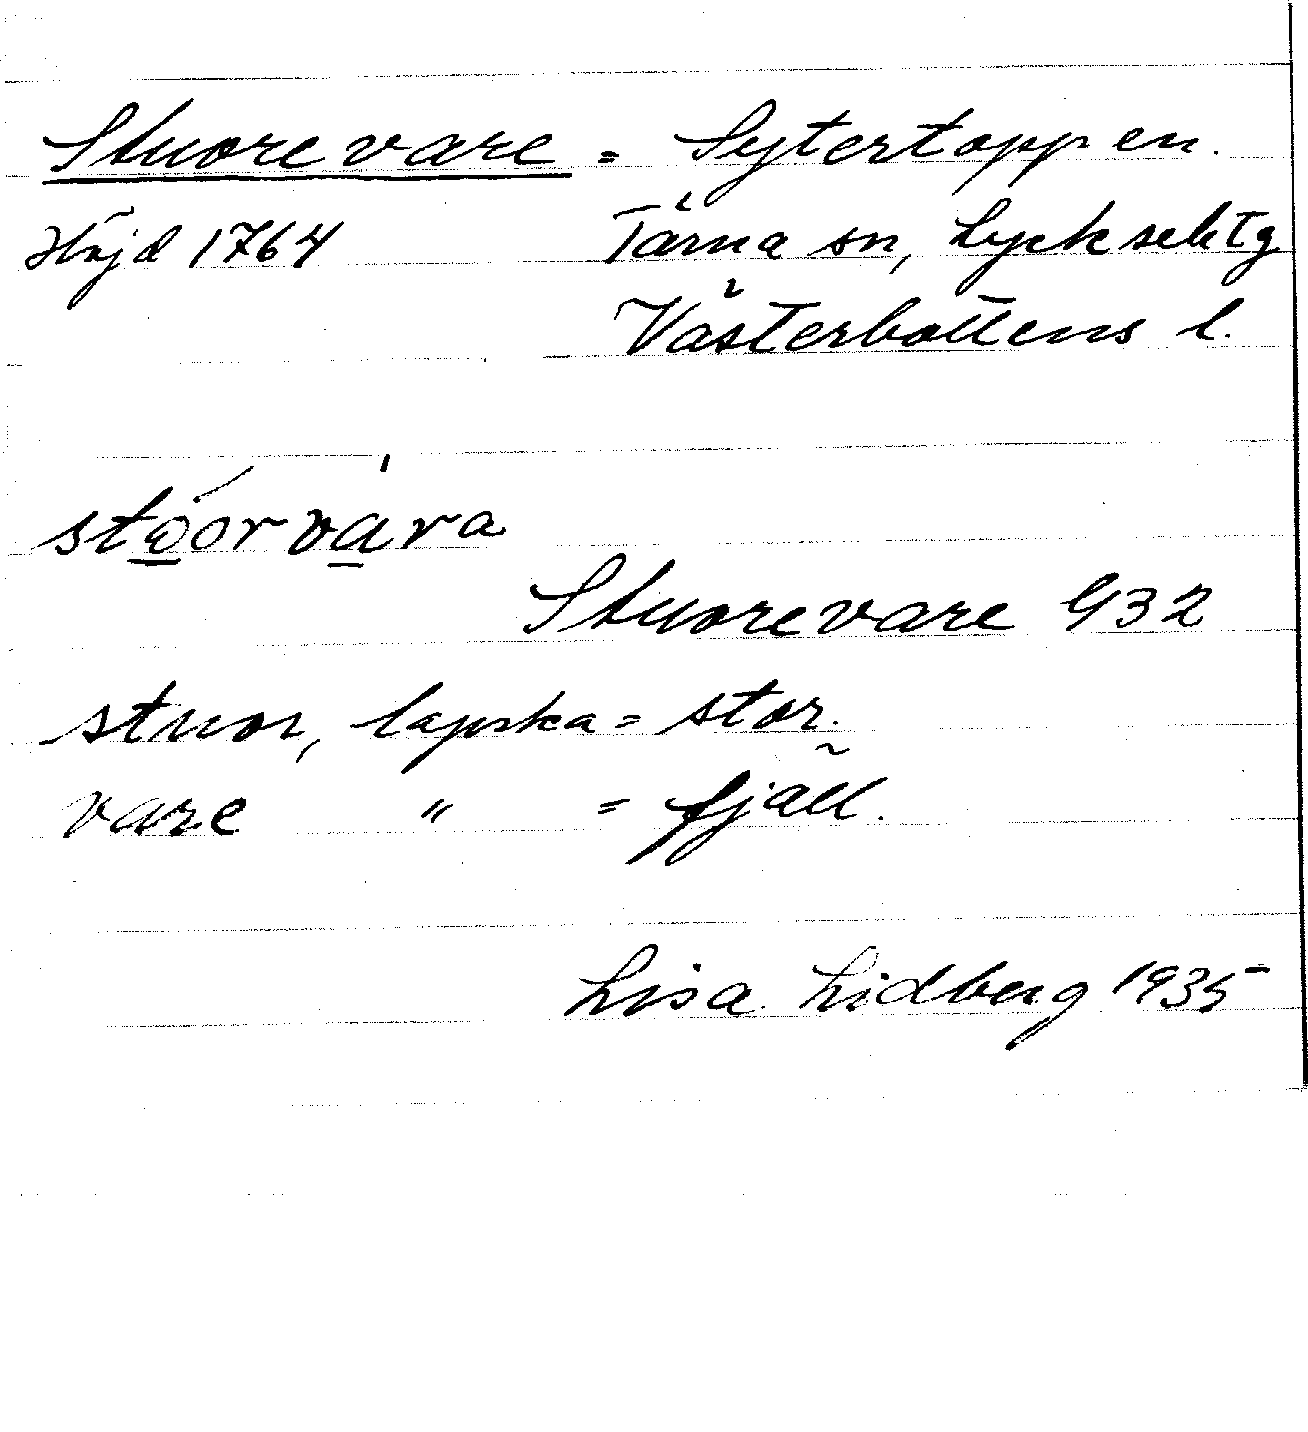 Stuorevare = Sytertoppen.
Höjd 1764 Tärna sn, Lycksele tg
Västerbottens l.
stωorvara
Stuorevare G32
stuor, lapska = stor.
vare " = fjäll.
Lisa Lidberg 1935